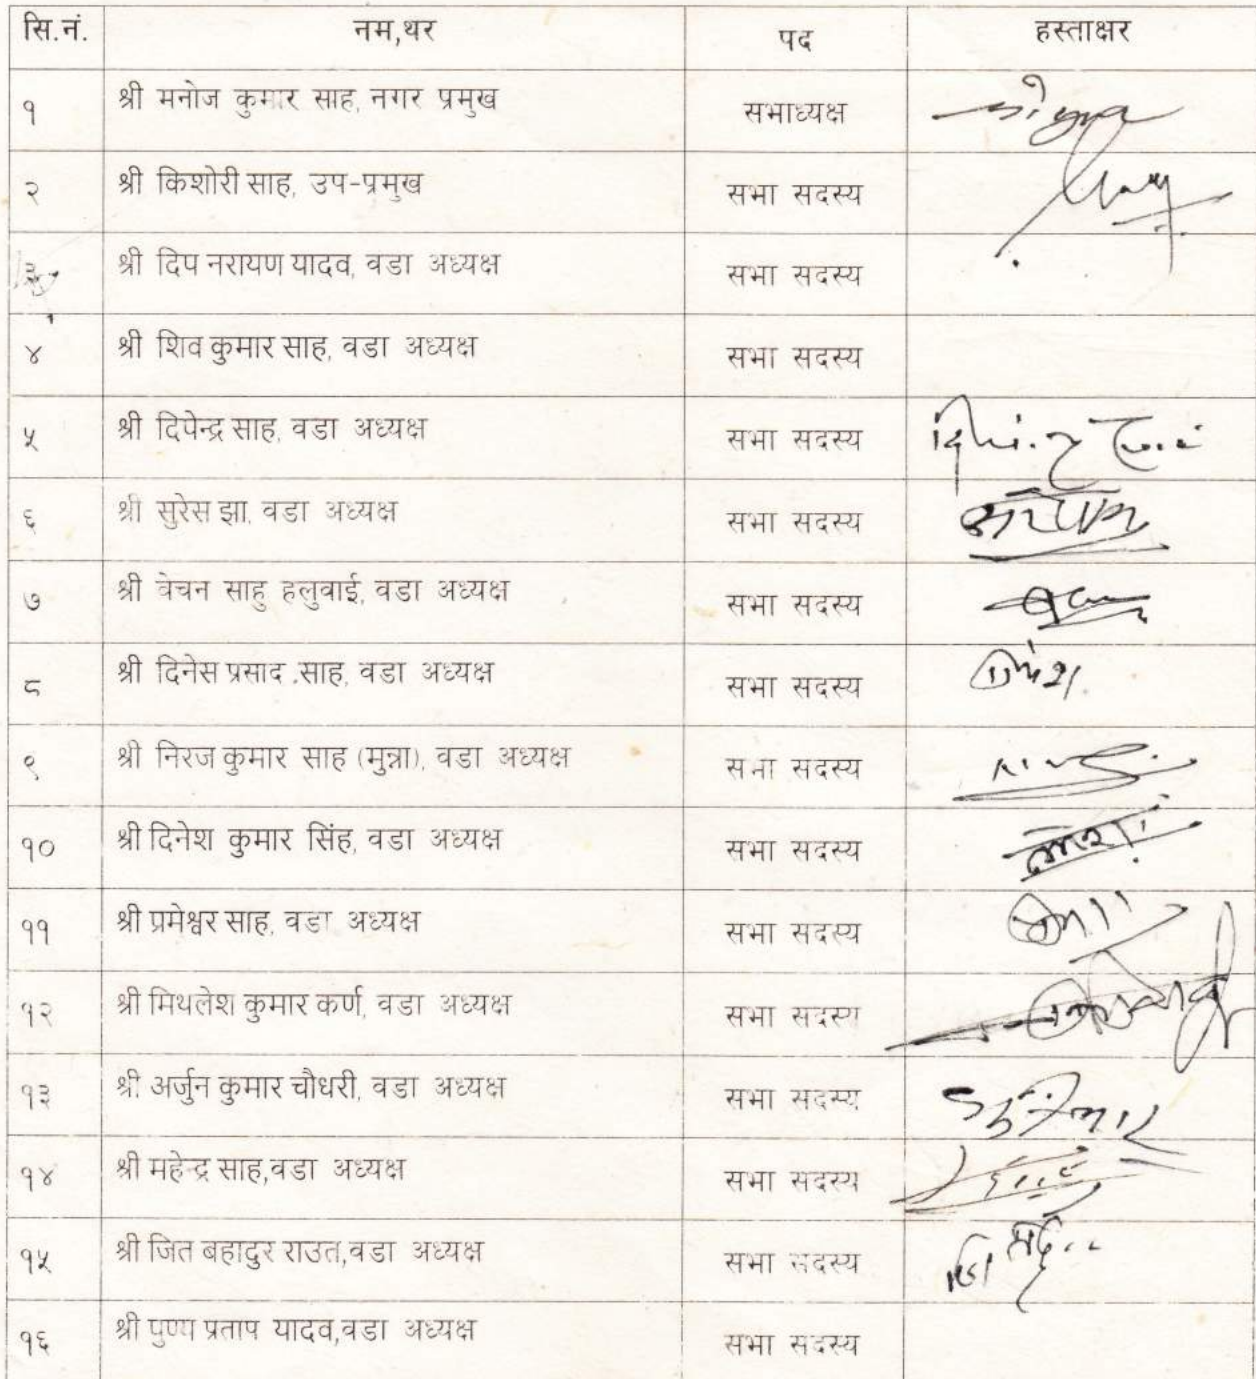 सि.नं. नम,थर पद हस्ताक्षर
१ श्री मनोज कुमार साह, नगर प्रमुख सभाध्यक्ष
२ श्री किशोरी साह, उप-प्रमुख सभा सदस्य
३ श्री दिप नरायण यादव, वडा अध्यक्ष सभा सदस्य
४ श्री शिव कुमार साह, वडा अध्यक्ष सभा सदस्य
५ श्री दिपेन्द्र साह, वडा अध्यक्ष सभा सदस्य
६ श्री सुरेस झा, वडा अध्यक्ष सभा सदस्य
७ श्री वेचन साहु हलुवाई, वडा अध्यक्ष सभा सदस्य
८ श्री दिनेस प्रसाद साह, वडा अध्यक्ष सभा सदस्य
९ श्री निरज कुमार साह (मुन्ना), वडा अध्यक्ष सभा सदस्य
१० श्री दिनेश कुमार सिंह, वडा अध्यक्ष सभा सदस्य
११ श्री प्रमेश्वर साह, वडा अध्यक्ष सभा सदस्य
१२ श्री मिथलेश कुमार कर्ण, वडा अध्यक्ष सभा सदस्य
१३ श्री अर्जुन कुमार चौधरी, वडा अध्यक्ष सभा सदस्य
१४ श्री महेन्द्र साह,वडा अध्यक्ष सभा सदस्य
१५ श्री जित बहादुर राउत,वडा अध्यक्ष सभा सदस्य
१६ श्री पुण्य प्रताप यादव,वडा अध्यक्ष सभा सदस्य